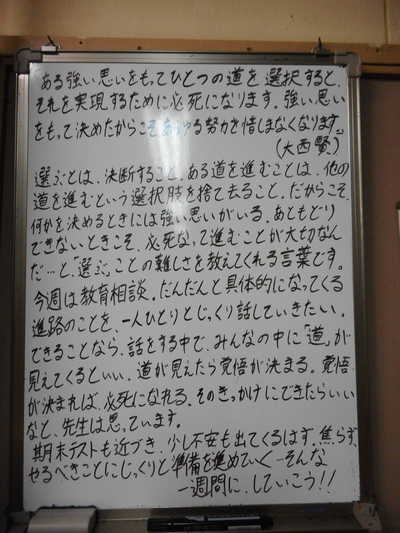 ある強い思いをもってひとつの道を選択すると、
それを実現するために必死になります。強い思い
をもって決めたからこそあらゆる努力を惜しまなくなります。
(大西賢)
選ぶとは、決断すること。ある道を進むことは、他の
道を進むという選択肢を捨て去ること。だからこそ、
何かを決めるときには強い思いがいる。あともどり
できないときこそ、必死なって進むことが大切なん
だ…と「選ぶ」ことの難しさを教えてくれる言葉です。
今週は教育相談。だんだんと具体的になってくる
進路のことを、一人ひとりとじっくり話していきたい。
できることなら、話をする中で、みんなの中に「道」が
見えてくるといい。道が見えたら覚悟が決まる。覚悟
が決まれば、必死になれる。そのきっかけにできたらいい
なと、先生は思っています。
期末テストも近づき、少し不安も出てくるはず。焦らず、
やるべきことにじっくりと準備を進めていく―そんな
一週間に、していこう!!